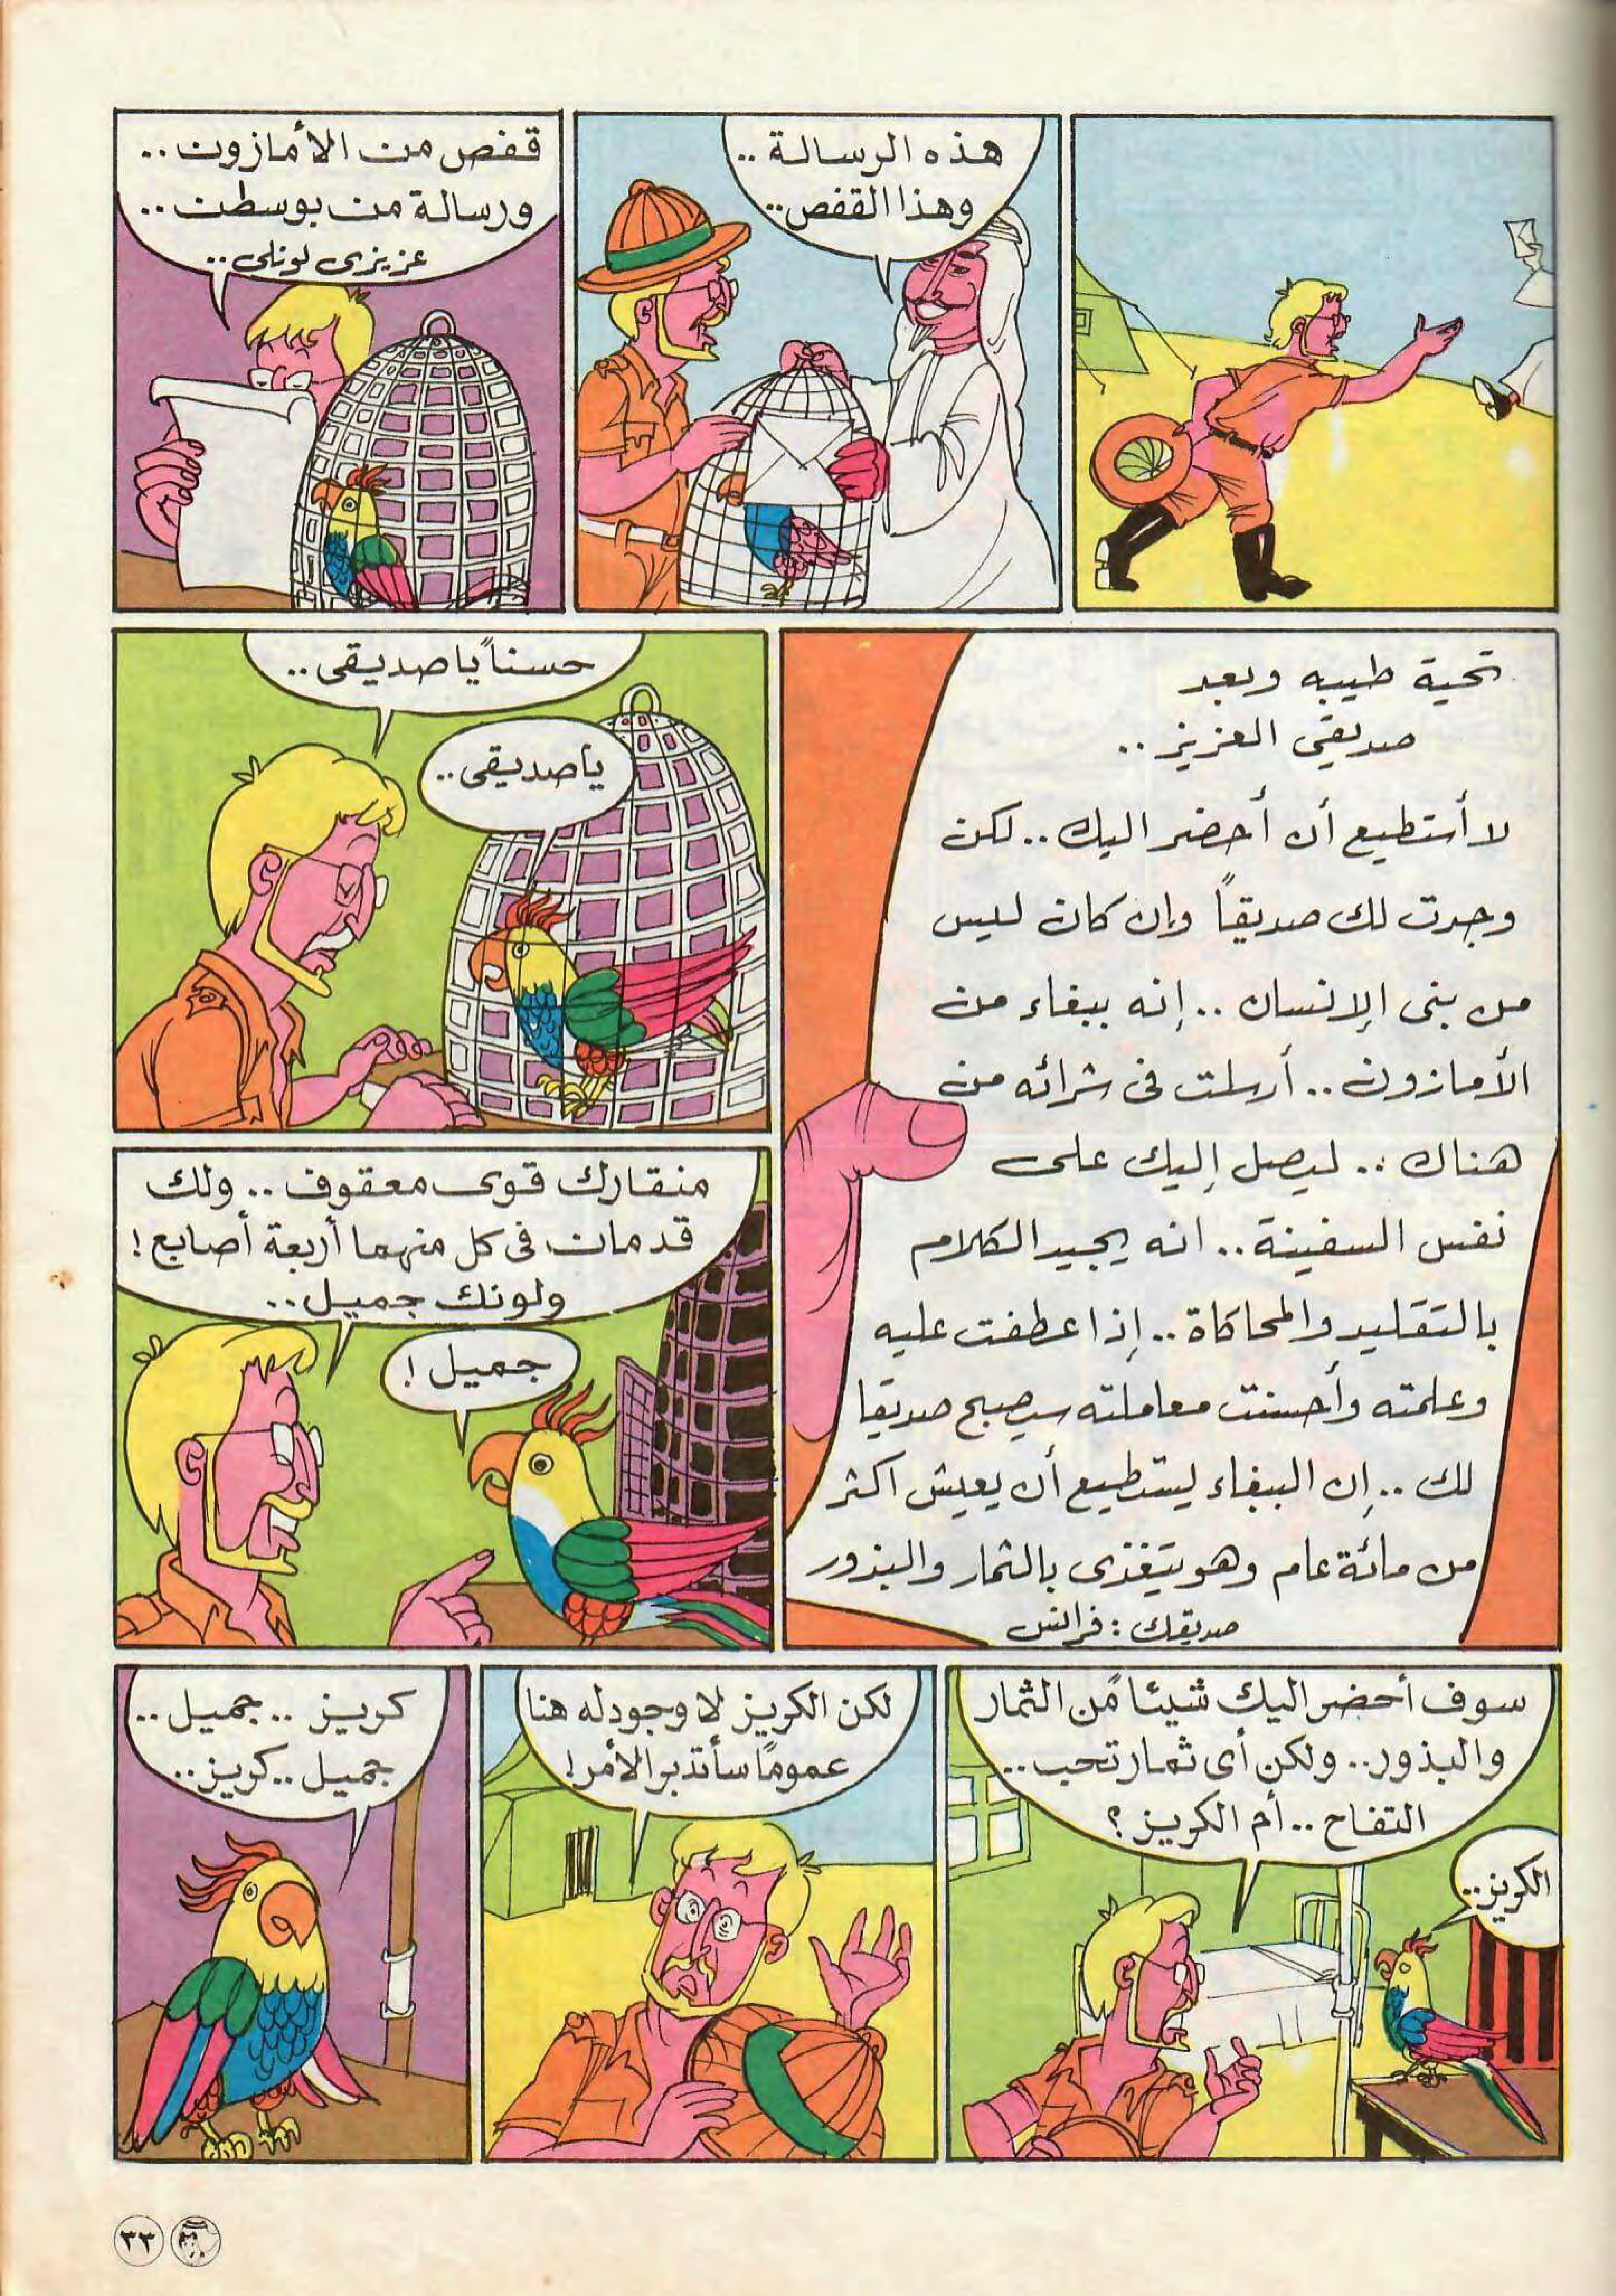 هذه الرسالة ..
وهذا القفص ..
قفص من الأمازون ..
ورسالة من بوسطن ..
عزيزى لونلى ..
تحية طيبه وبعد
صديقي العزيز ..
لا أستطيع أن أحضر اليك .. لكن
وجدت لك صديقاً وإن كان ليس
من بنى الإنسان .. إنه ببغاء من
الأمازون .. أرسلت فى شرائه من
هناك .. ليصل إليك على
نفس السفينة .. انه يجيد الكلام
بالتقليد والمحاكاة .. إذا عطفت عليه
وعلمته وأحسنت معاملته سيصبح صديقا
لك .. إن الببغاء يستطيع أن يعيش اكثر
من مائة عام وهو يتغذى بالثمار والبذور
صديقك : فرانس
حسناً يا صديقى ..
يا صديقى ..
منقارك قوى معقوف .. ولك
قدمان فى كل منهما أربعة أصابع !
ولونك جميل ..
جميل !
سوف أحضر اليك شيئاً من الثمار
والبذور .. ولكن أى ثمار تحب ..
التفاح .. أم الكريز ؟
الكريز ..
لكن الكريز لا وجود له هنا
عموماً سأتدبر الأمر !
كريز .. جميل ..
جميل .. كريز ..
٣٣